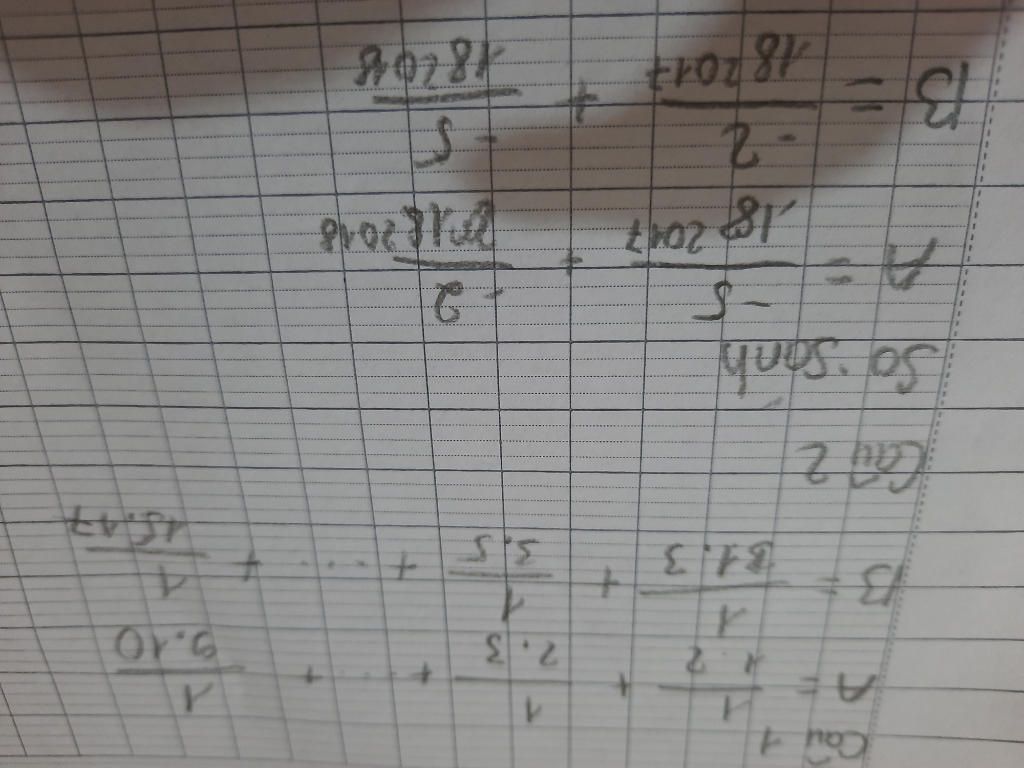 Câu 1
A = 1/1.2 + 1/2.3 + ... + 1/9.10
B = 1/1.3 + 1/3.5 + ... + 1/15.17
Câu 2
So sánh
A = -5/18^2017 + -2/18^2018
B = -2/18^2017 + -5/18^2018